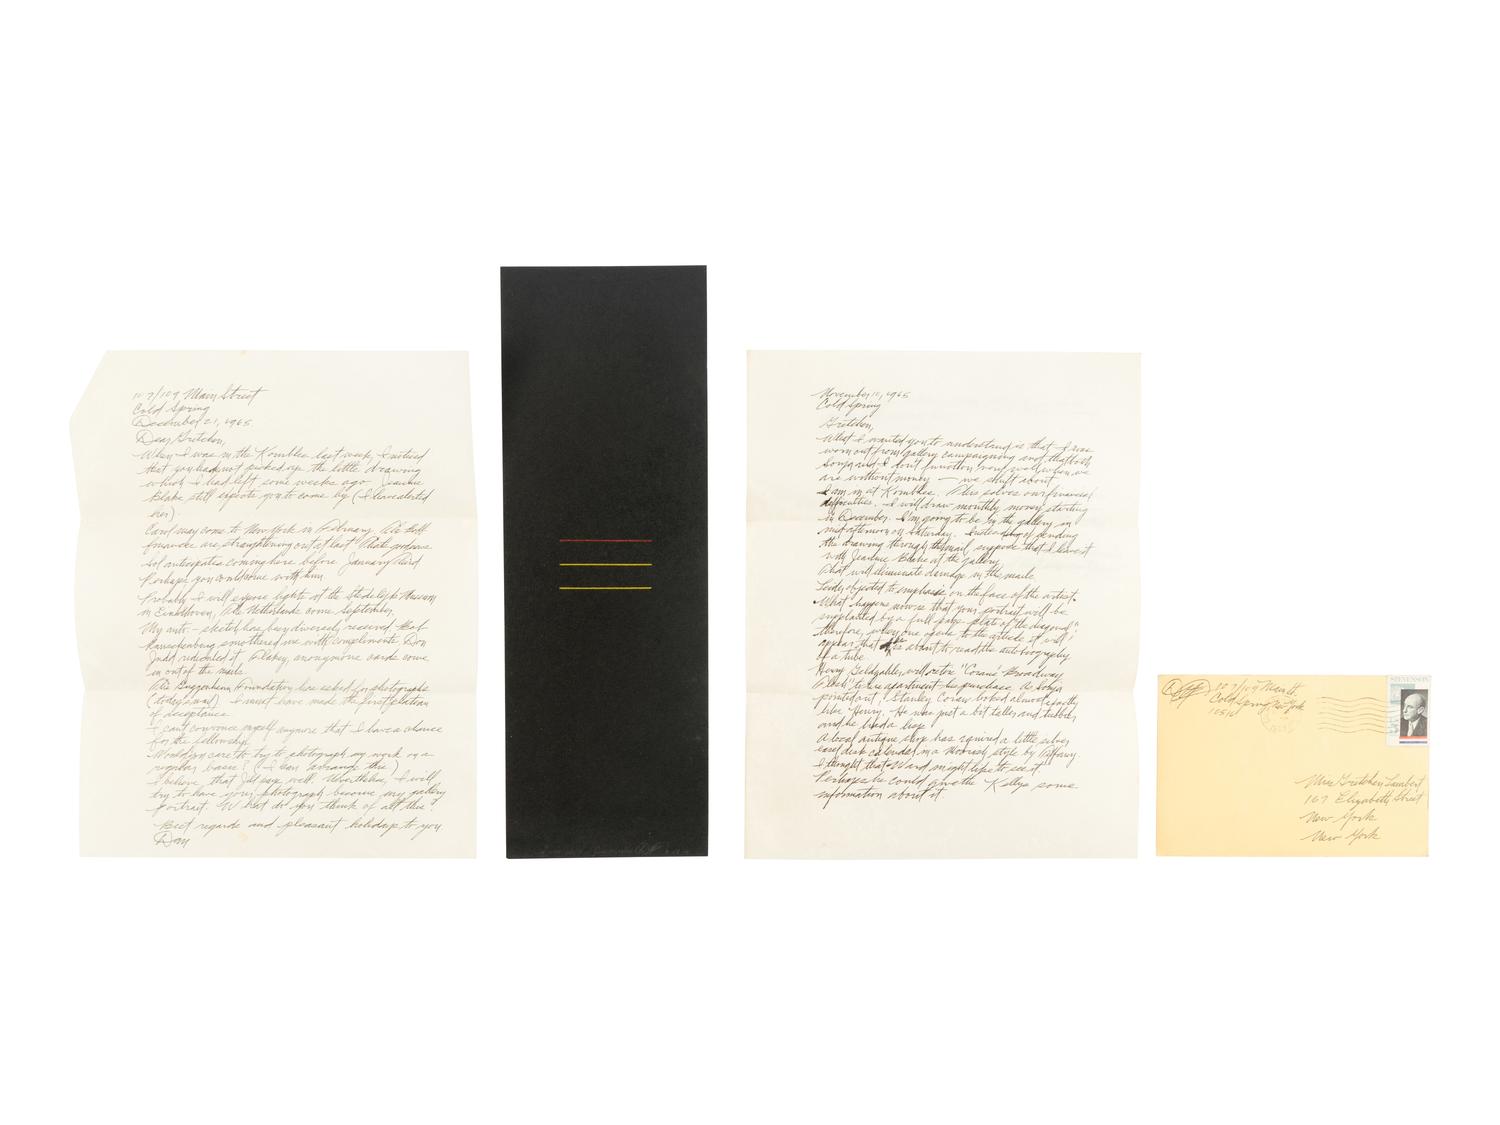 107/109 Main Street
Cold Spring
December 21, 1965
Dear Gretchen,
When I was in the Kornblee last week, I noticed
that you had not picked up the little drawing
which I had left some weeks ago. Jeanne
Blake still expects you to come by (I have alerted
her).
Carol may come to New York in February.
are straightening out at last.
coming here before January third
Perhaps you could come with him
Probably I will expose lights at the Stedelijk Museum
in Eindhoven, The Netherlands come September.
My auto-sketch has been diversely received. Bob
Rauschenberg smothered me with compliments. Don
Judd ridiculed it. Flakey, anonymous cards come
in out of the mails
The Guggenheim Foundation has asked for photographs
(today's mail) I must have made the first
of acceptance
I can't convince myself anymore that I have a chance
for the fellowship.
Would you care to try to photograph my work on a
regular basis? (I can arrange this)
I believe that well. Nevertheless, I will
try to have your photograph become my gallery
portrait. What do you think of all this?
Best regards and pleasant holidays to you
Dan
November 11, 1965
Cold Spring
Gretchen,
What I wanted you to understand is that I was
worn out from gallery campaigning and that both
Sonja and I don't function very well when we
are without money — we shift about
I am in at Kornblee. This solves our financial
difficulties. I will draw monthly money starting
in December. I'm going to be in the gallery in
mid afternoon on Saturday. Instead of sending
the drawing through the mail, suppose that I leave it
with Jeanne Blake at the gallery.
That will eliminate damage in the mails
objected to emphasis on the face of the artist.
What happens now is that your portrait will be
supplanted by a full page plate of "the diagonal"
therefore, when one opens to the article it will
appear that he is about to read the autobiography
of a tube
Henry Geldzahler will retire "Coran's Broadway
Flesh" to his apartment his purchase. As Sonja
pointed out, Stanley Coran looked almost exactly
like Henry. He was just a bit taller and tubbier,
and he had a lisp
A local antique shop has acquired a little silver
easel desk calendar in a Moorish style by Tiffany
I thought that Ward might like to see it.
Perhaps he could give the Kellys some
information about it
107/109 Main St.
Cold Spring New York
10516
STEVENSON
Mrs Gretchen Lambert
167 Elizabeth Street
New York
New York